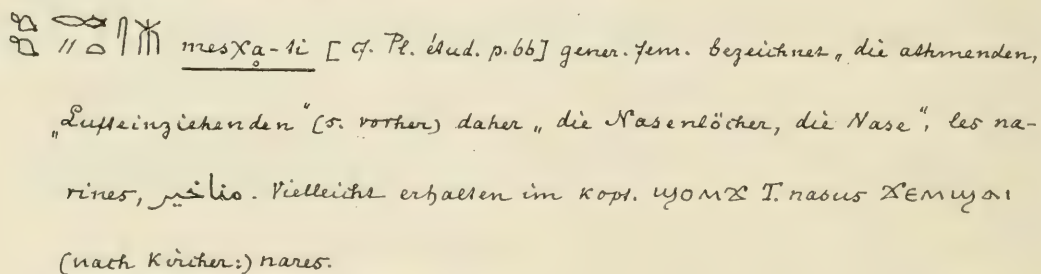 mesχa-ti [cf. Pl. étud. p. 66] gener. fem. bezeichnet „die athmenden,
„Lufteinziehenden“ (s. vorher) daher „die Nasenlöcher, die Nase“, les na-
rines, مناخير. Vielleicht erhalten im kopt. ϣⲟⲙϫ T. nasus ϫⲉⲙϣⲁⲓ
(nach Kircher:) nares.